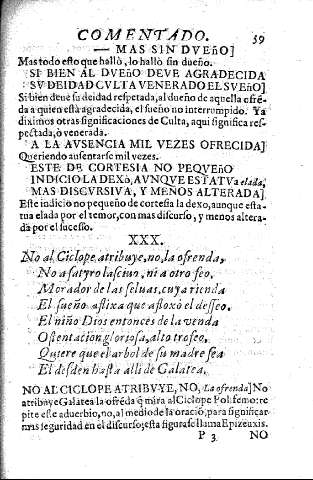 COMENTADO. 59
— MAS SIN DVEñO]
Mas todo esto que hallò, lo hallò sin dueño.
SI BIEN AL DVEñO DEVE AGRADECIDA
SV DEIDAD CVLTA VENERADO EL SVEñO]
Si bien deue su deidad respetada, al dueño de aquella ofrẽ-
da a quien està agradecida, el sueño no interrumpido. Ya
diximos otras significaciones de Culta, aqui significa res-
pectada, ò venerada.
A LA AVSENCIA MIL VEZES OFRECIDA]
Queriendo ausentarse mil vezes.
ESTE DE CORTESIA NO PEQVEñO
INDICIO LA DEXò, AVNQVE ESTATVA elada,
MAS DISCVRSIVA, Y MENOS ALTERADA]
Este indicio no pequeño de cortesia la dexo, aunque esta-
tua elada por el temor, con mas discurso, y menos altera-
da por el sucesso.
XXX.
No al Ciclope atribuye, no, la ofrenda,
No a satyro lasciuo, ni a otro feo.
Morador de las seluas, cuya rienda
El sueño aflixa que afloxò el desseo.
El niño Dios entonces de la venda
Ostentacion gloriosa, alto trofeo.
Quiere que el arbol de su madre sea
El desden hasta alli de Galatea.
NO AL CICLOPE ATRIBVYE, NO, La ofrenda] No
atribuye Galatea la ofrẽda q̃ mira al Ciclope Polifemo: re
pite este aduerbio, no, al medio de la oraciõ, para significar
mas seguridad en el discurso; esta figura se llama Epizeuxis.
P 3 NO